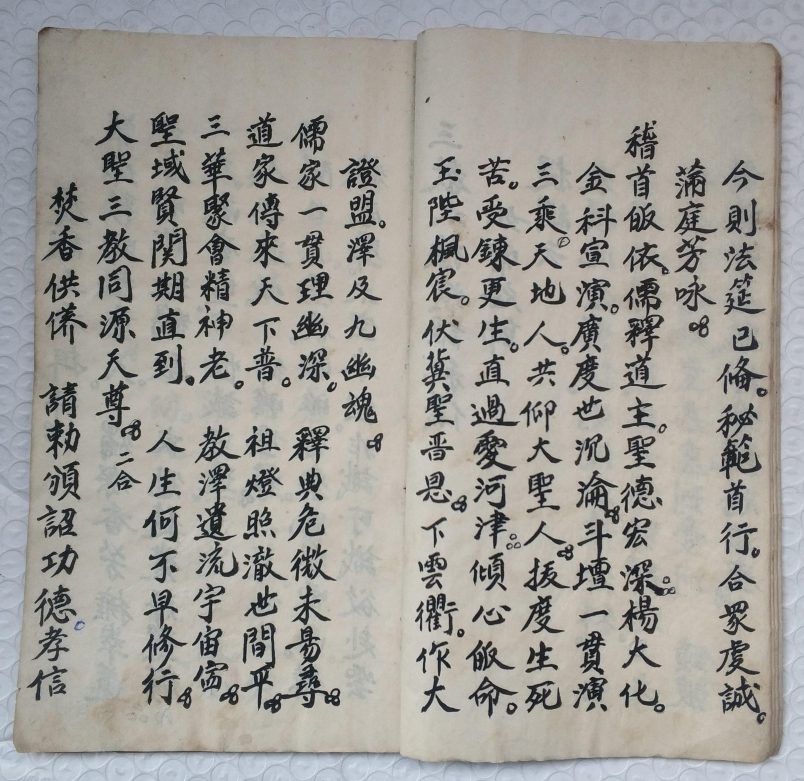 今則法筵已俻。秘範首行。合眾虔誠。
蒲庭芳咏
稽首皈依。儒釋道主。聖德宏深。楊大化。
金科宣演。廣度世沉淪。斗壇一貫演
三乘。天地人。共仰大聖人。拔度生死
苦。受鍊更生。直過愛河津。傾心皈命。
玉陛楓宸。伏冀聖普恩。下雲衢。作大
證盟。澤及九幽魂。
儒家一貫理幽深。釋典危微未易尋。
道家傳來天下普。祖燈照澈世間平。
三華聚會精神老。教澤遺流宇宙
聖域賢関期直到。人生何不早修行。
大聖三教同源天尊。二合
焚香供俻 請勅頒詔功德孝信